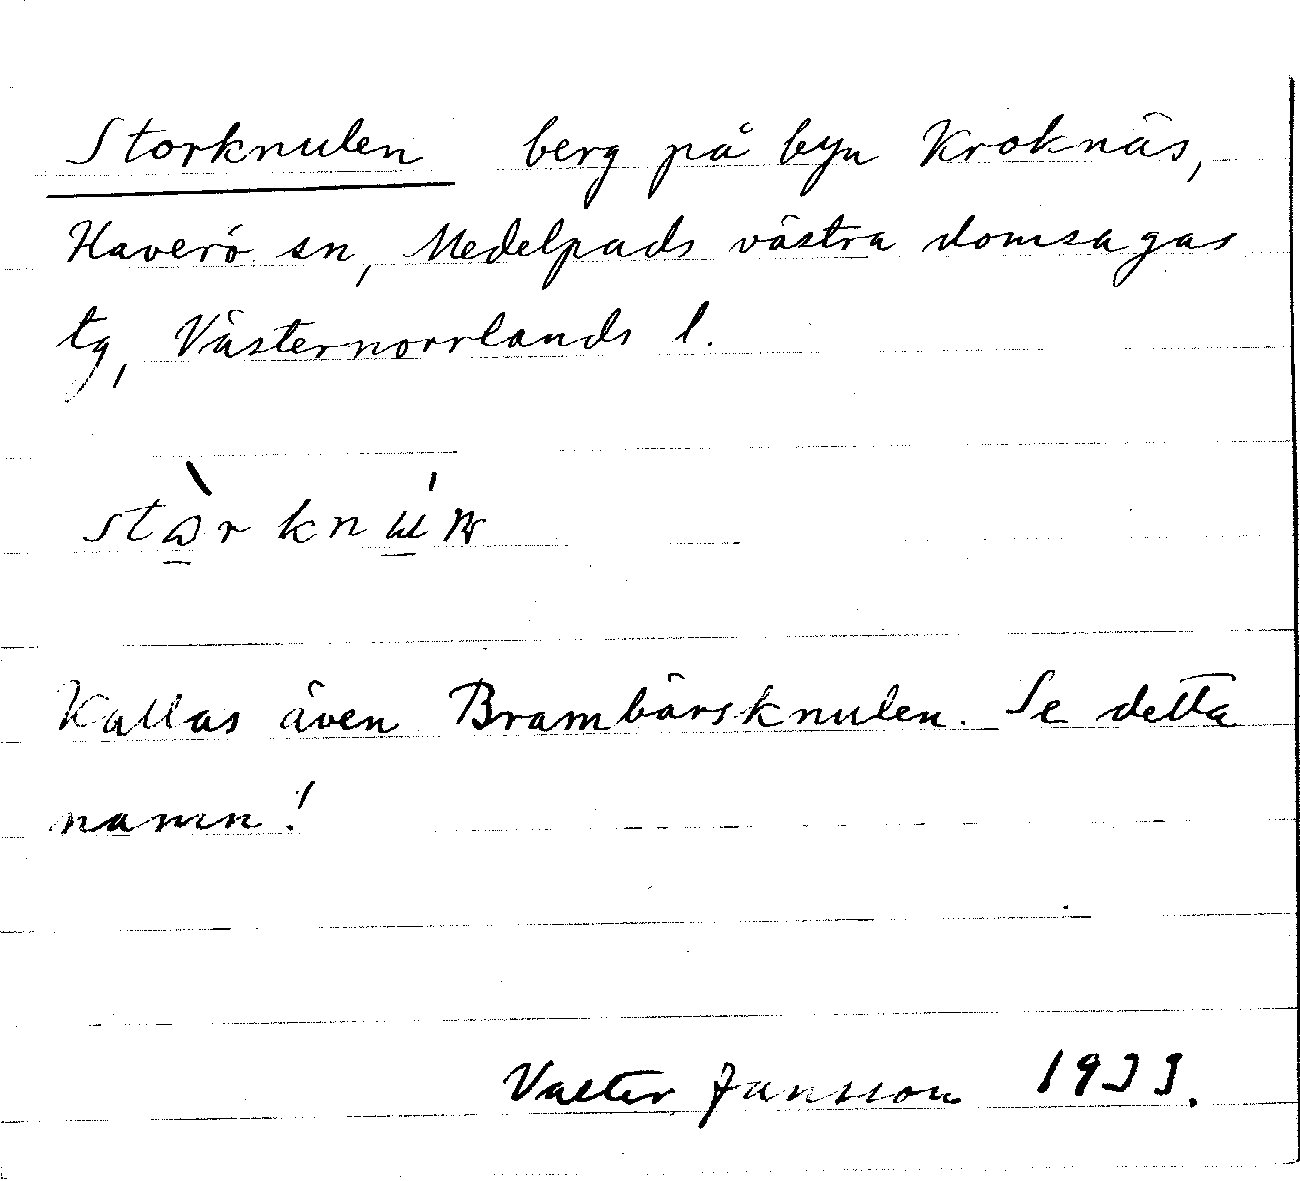 Storknulen berg på byn Kroknäs,
Haverö sn, Medelpads västra domsagas
tg, Västernorrlands l.
Kallas även Brambärsknulen. Se detta
namn!
Valter Jansson 1933.